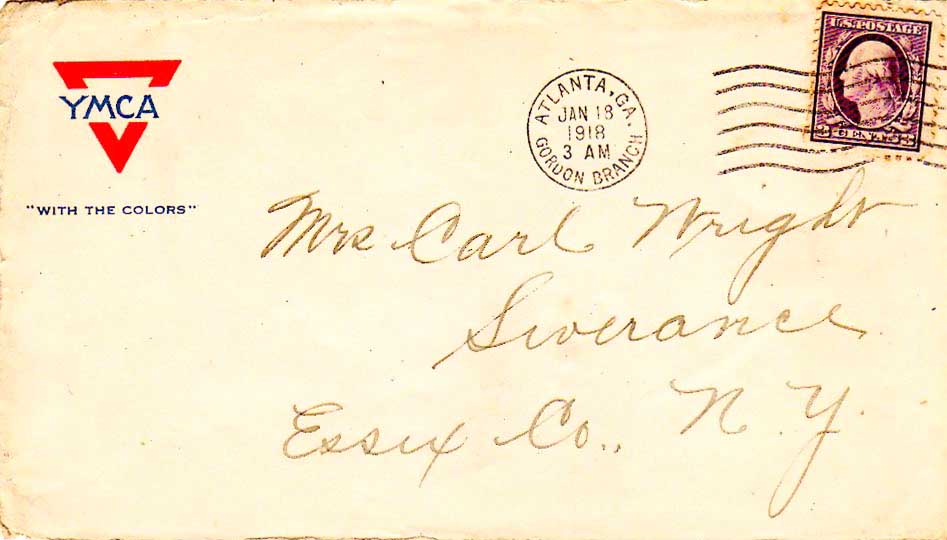 YMCA
"WITH THE COLORS"
ATLANTA, GA.
JAN 18
1918
3 AM
GORDON BRANCH
U.S. POSTAGE
3 CENTS 3
Mrs Carl Wright
Severance
Essex Co., N.Y.